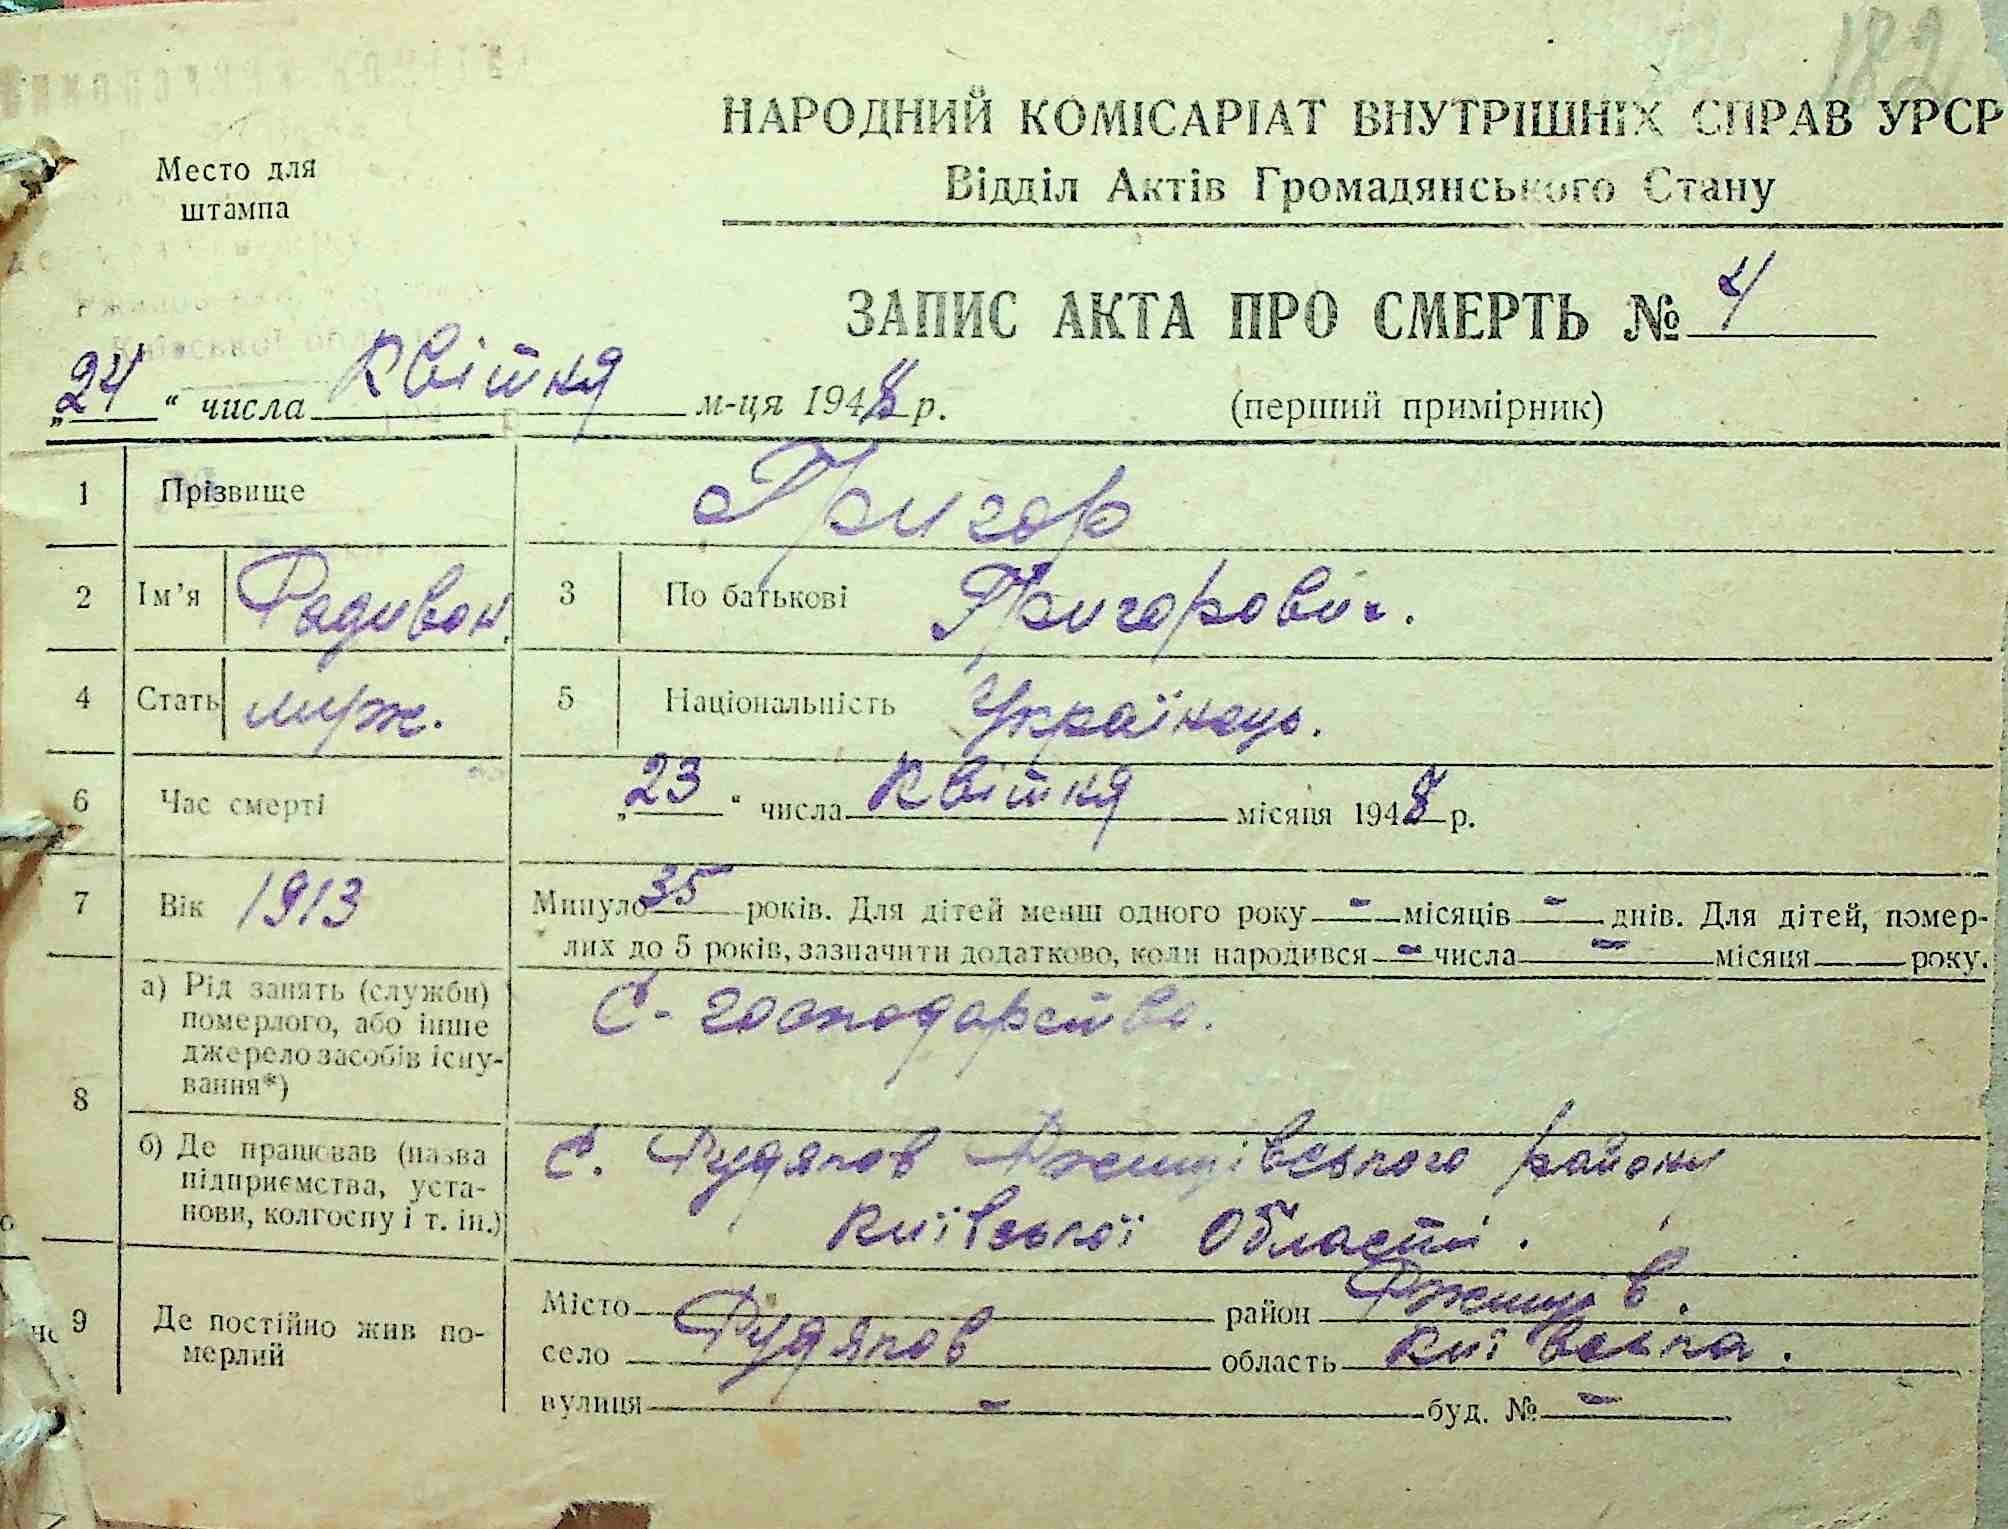 182
НАРОДНИЙ КОМІСАРІАТ ВНУТРІШНІХ СПРАВ УРСР
Відділ Актів Громадянського Стану
Место для
штампа
ЗАПИС АКТА ПРО СМЕРТЬ № 4
Київської
„24“ числа Квітня м-ця 1948 р.
(перший примірник)
1 Прізвище Григор
2 Ім'я Радивон. 3 По батькові Григорович.
4 Стать муж. 5 Національність Українець.
6 Час смерті „23“ числа Квітня місяця 1948 р.
7 Вік 1913 Минуло 35 років. Для дітей менш одного року - місяців - днів. Для дітей, помер-
лих до 5 років, зазначити додатково, коли народився - числа - місяця року.
8 а) Рід занять (служби)
померлого, або інше
джерело засобів існу-
вання*)
С-господарство.
б) Де працював (назва
підприємства, уста-
нови, колгоспу і т. ін.)
С. Рудяков Ржищівського району
Київської Області.
9 Де постійно жив по-
мерлий
Місто район Ржищів.
село Рудяков область Київська.
вулиця - буд. № -